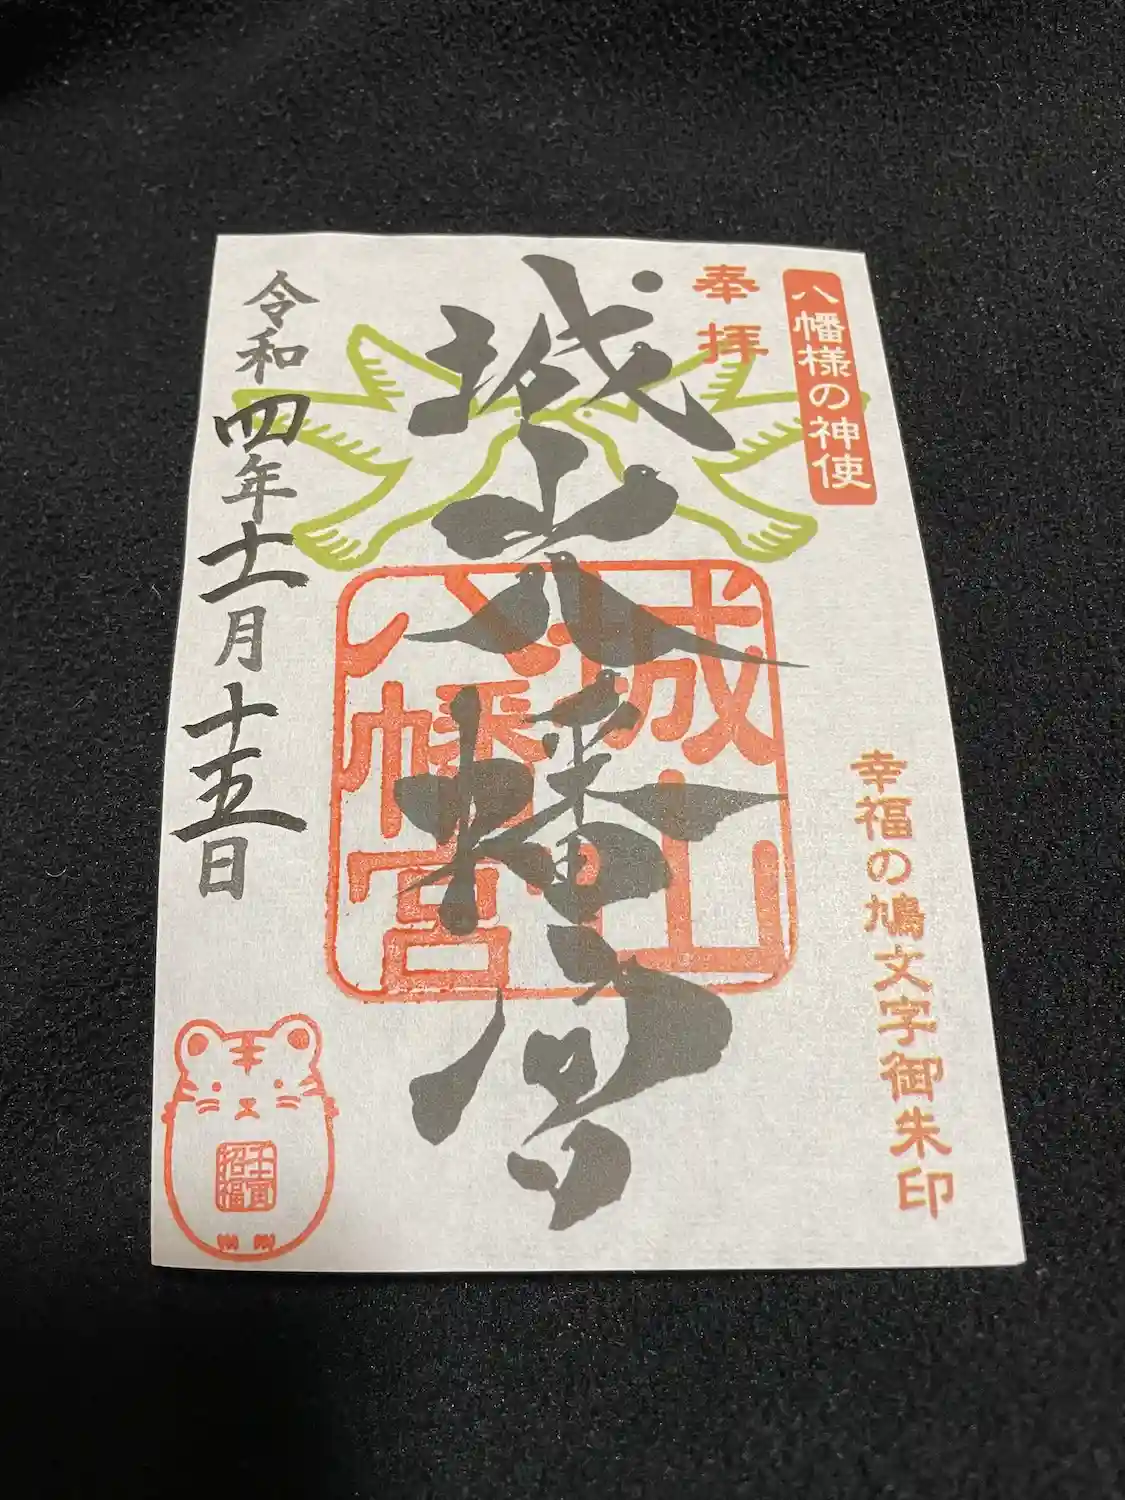 八幡様の神使
奉拝
幸福の鳩文字御朱印
城山八幡宮
城山
八幡宮
令和四年十一月十五日
壬寅
招福